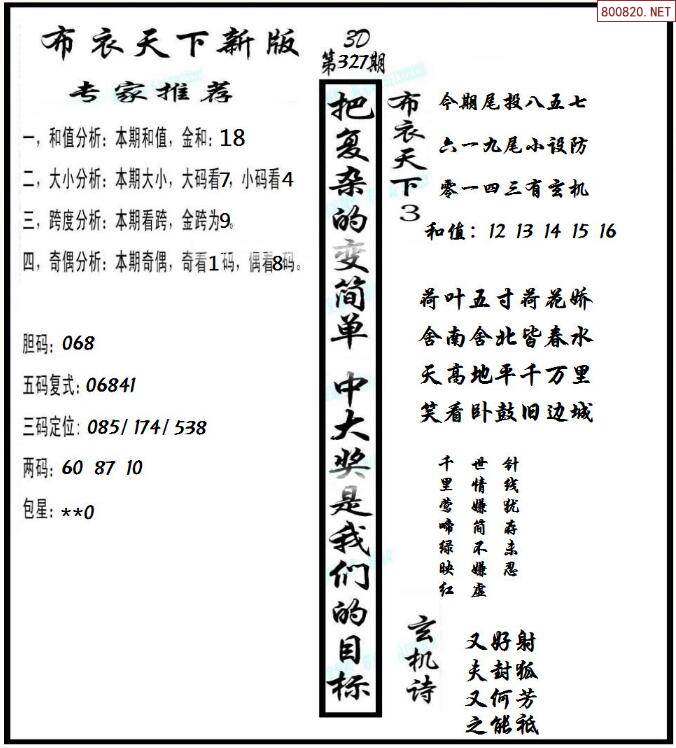 800820.NET
布衣天下新版
专家推荐
一，和值分析：本期和值，金和：18
二，大小分析：本期大小，大码看7，小码看4
三，跨度分析：本期看跨，金跨为9。
四，奇偶分析：本期奇偶，奇看1码，偶看8码。
胆码：068
五码复式：06841
三码定位：085/174/538
两码：60 87 10
包星：**0
3D
第327期
把复杂的变简单 中大奖是我们的目标
布衣天下3
今期尾投八五七
六一九尾小设防
零一四三有玄机
和值：12 13 14 15 16
荷叶五寸荷花娇
舍南舍北皆春水
天高地平千万里
笑看卧鼓旧边城
千里莺啼绿映红
世情嫌简不嫌虚
针线犹存未忍
玄机诗
又好射
夫封狐
又何芳
之能祗